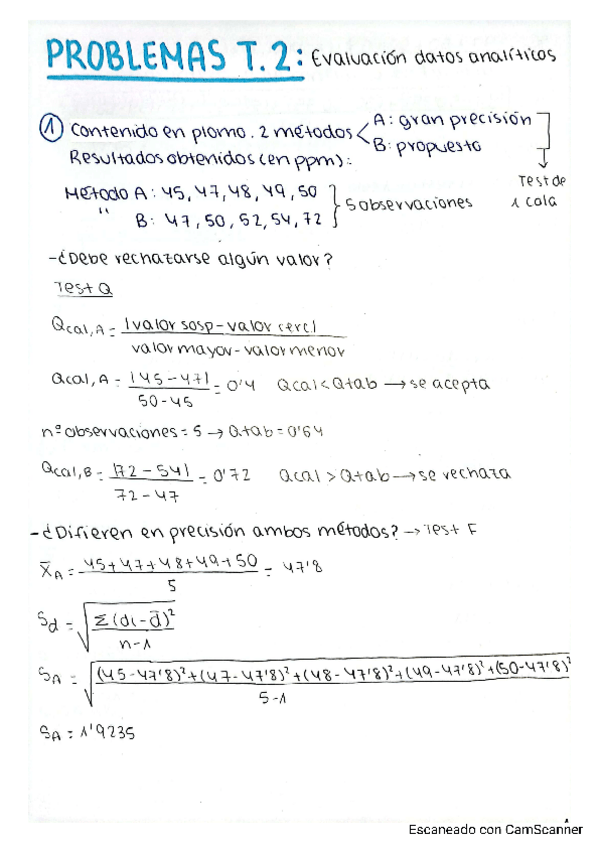 PROBLEMAS T.2: Evaluación datos analíticos
① Contenido en plomo. 2 métodos < A: gran precisión
B: propuesto
Resultados obtenidos (en ppm):
Test de
1 cola
Método A: 45, 47, 48, 49, 50
" B: 47, 50, 52, 54, 72
5 observaciones
-¿Debe rechazarse algún valor?
Test Q
Qcal,A = |valor sosp - valor cerc|
valor mayor - valor menor
Qcal,A = |45 - 47| / 50 - 45 = 0'4 Qcal < Qtab → se acepta
nº observaciones = 5 → Qtab = 0'64
Qcal,B = |72 - 54| / 72 - 47 = 0'72 Qcal > Qtab → se rechaza
-¿Difieren en precisión ambos métodos? → Test F
x̄A = 45 + 47 + 48 + 49 + 50 / 5 = 47'8
Sd = √ Σ(di - d̄)² / n - 1
SA = √ (45 - 47'8)² + (47 - 47'8)² + (48 - 47'8)² + (49 - 47'8)² + (50 - 47'8)² / 5 - 1
SA = 1'9235
Escaneado con CamScanner